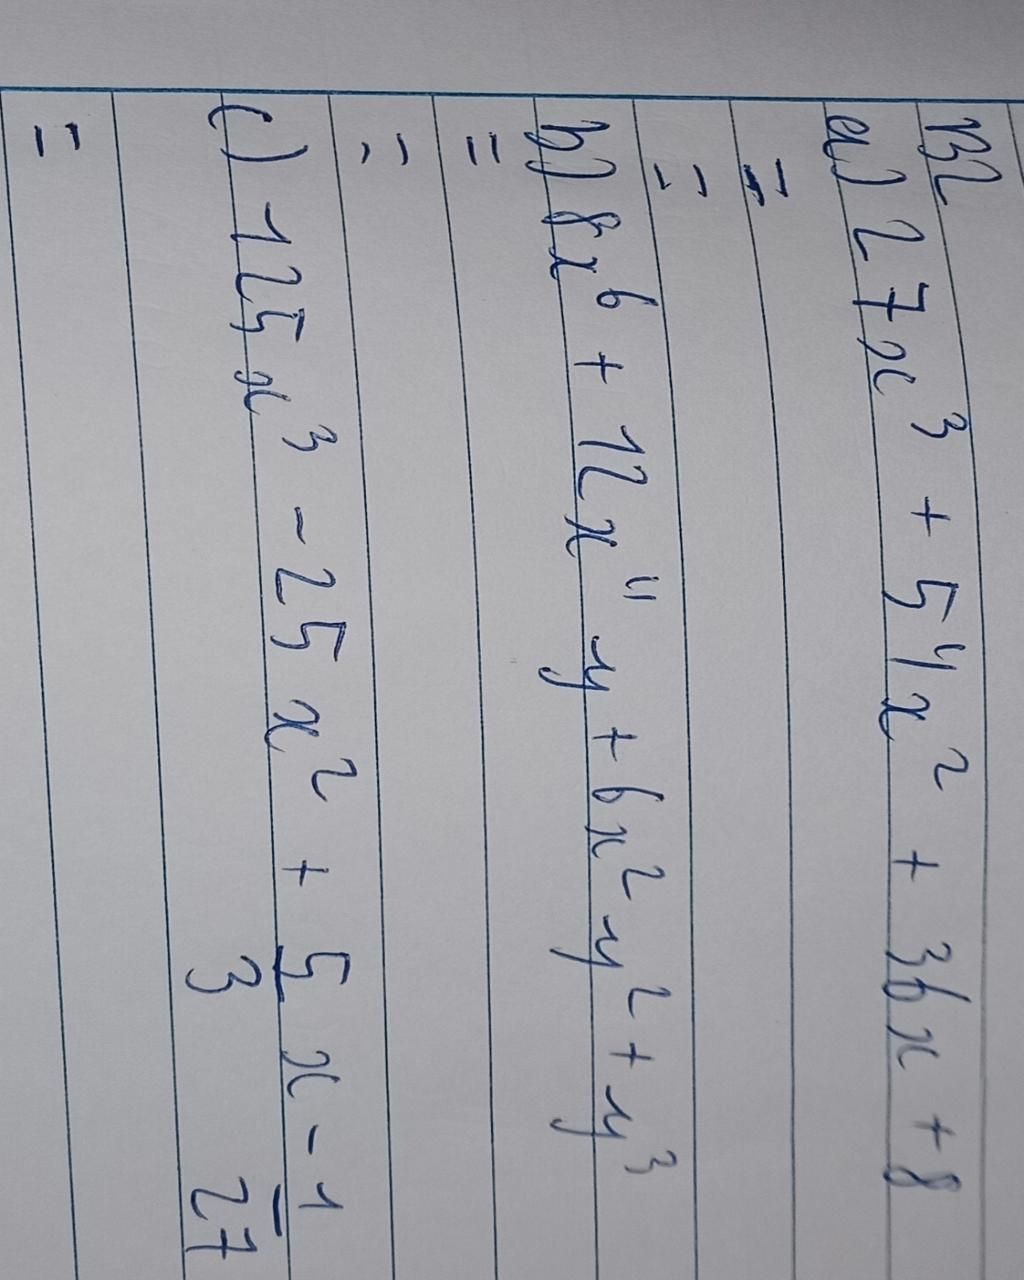 B2
a) 27x³ + 54x² + 36x + 8
=
=
b) 8x⁶ + 12x⁴y + 6x²y² + y³
=
=
c) 125x³ - 25x² + 5/3 x - 1/27
=